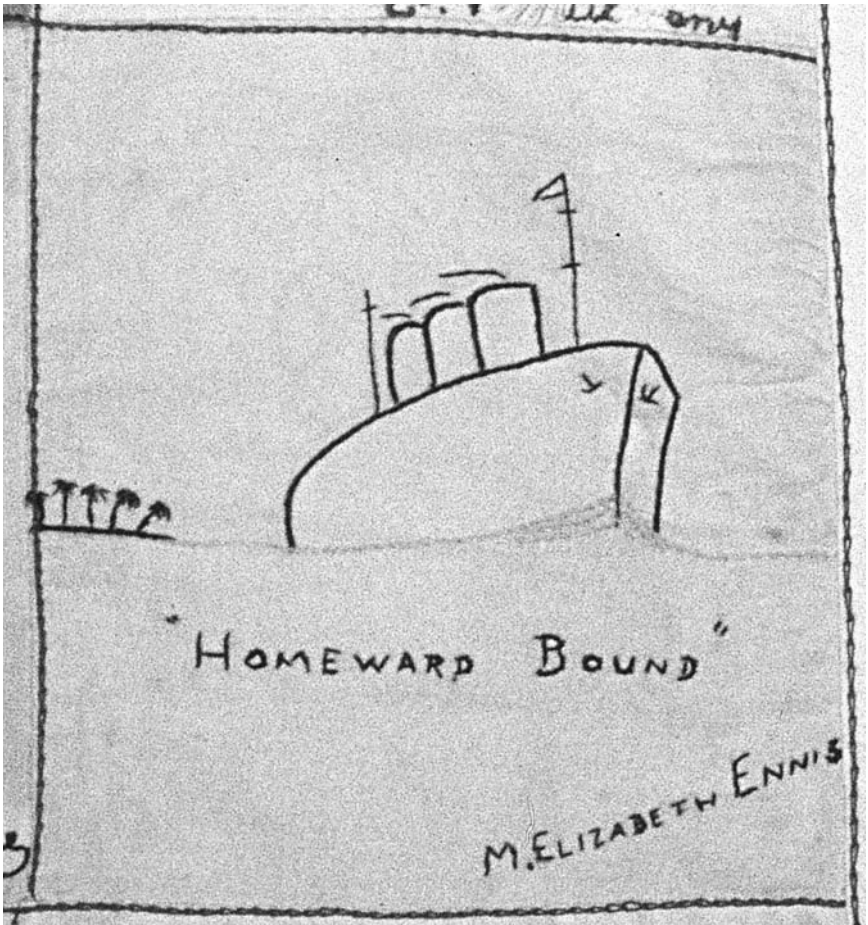 "HOMEWARD BOUND"
M. ELIZABETH ENNIS